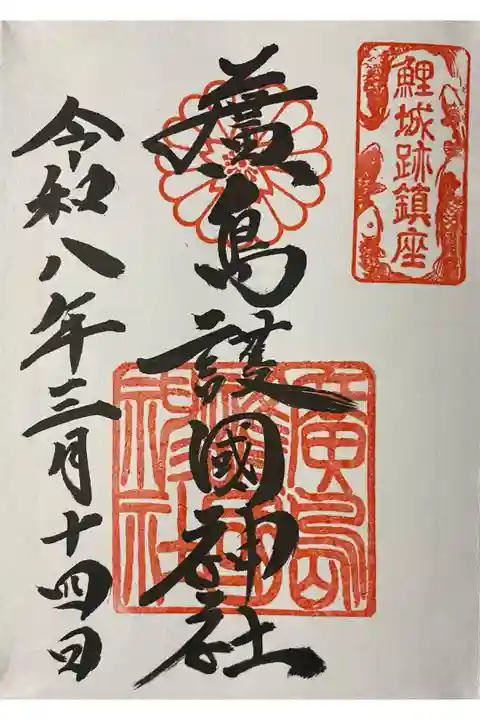 鯉城跡鎮座
廣島護國神社
廣島
護國
神社
令和八年三月十四日